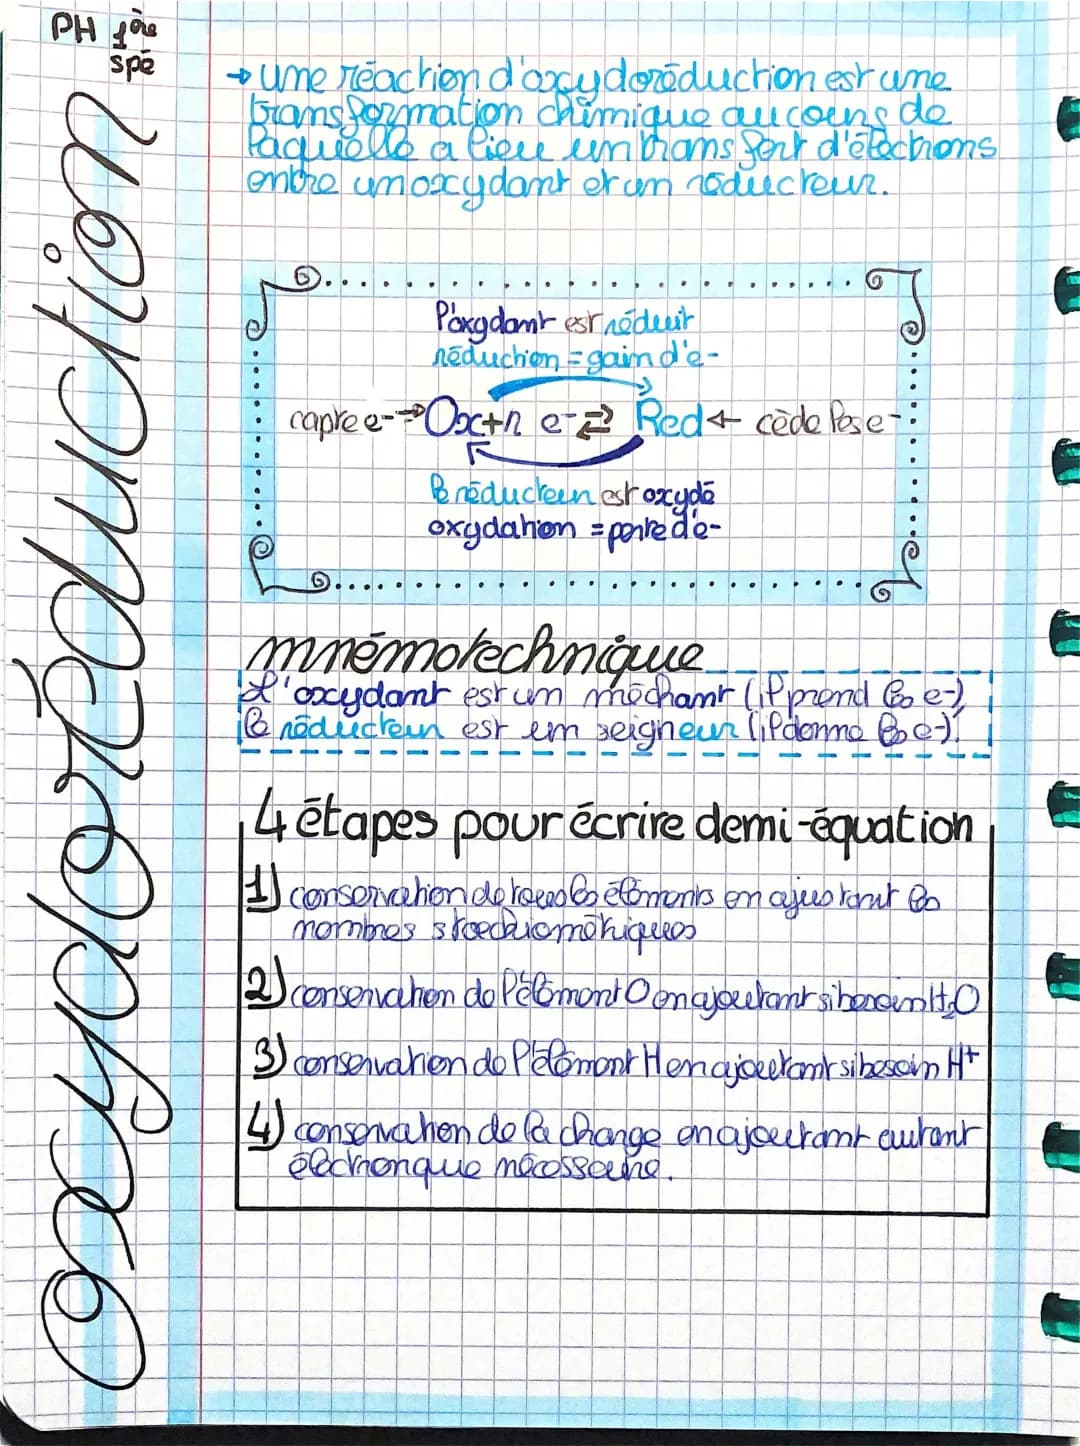 PH 1ère
spé
oxydoréduction
→ une réaction d'oxydoréduction est une
transformation chimique au cours de
laquelle a lieu un transfert d'électrons
entre un oxydant et un réducteur.
l'oxydant est réduit
réduction = gain d'e-
capte e- → Ox + n e- ⇄ Red ← cède les e-
le réducteur est oxydé
oxydation = perte d'e-
mnémotechnique
L'oxydant est un méchant (il prend les e-),
le réducteur est un seigneur (il donne les e-).
4 étapes pour écrire demi-équation
1) conservation de tous les éléments en ajustant les
nombres stoechiométriques
2) conservation de l'élément O en ajoutant si besoin H₂O
3) conservation de l'élément H en ajoutant si besoin H⁺
4) conservation de la charge en ajoutant autant
électron que nécessaire.